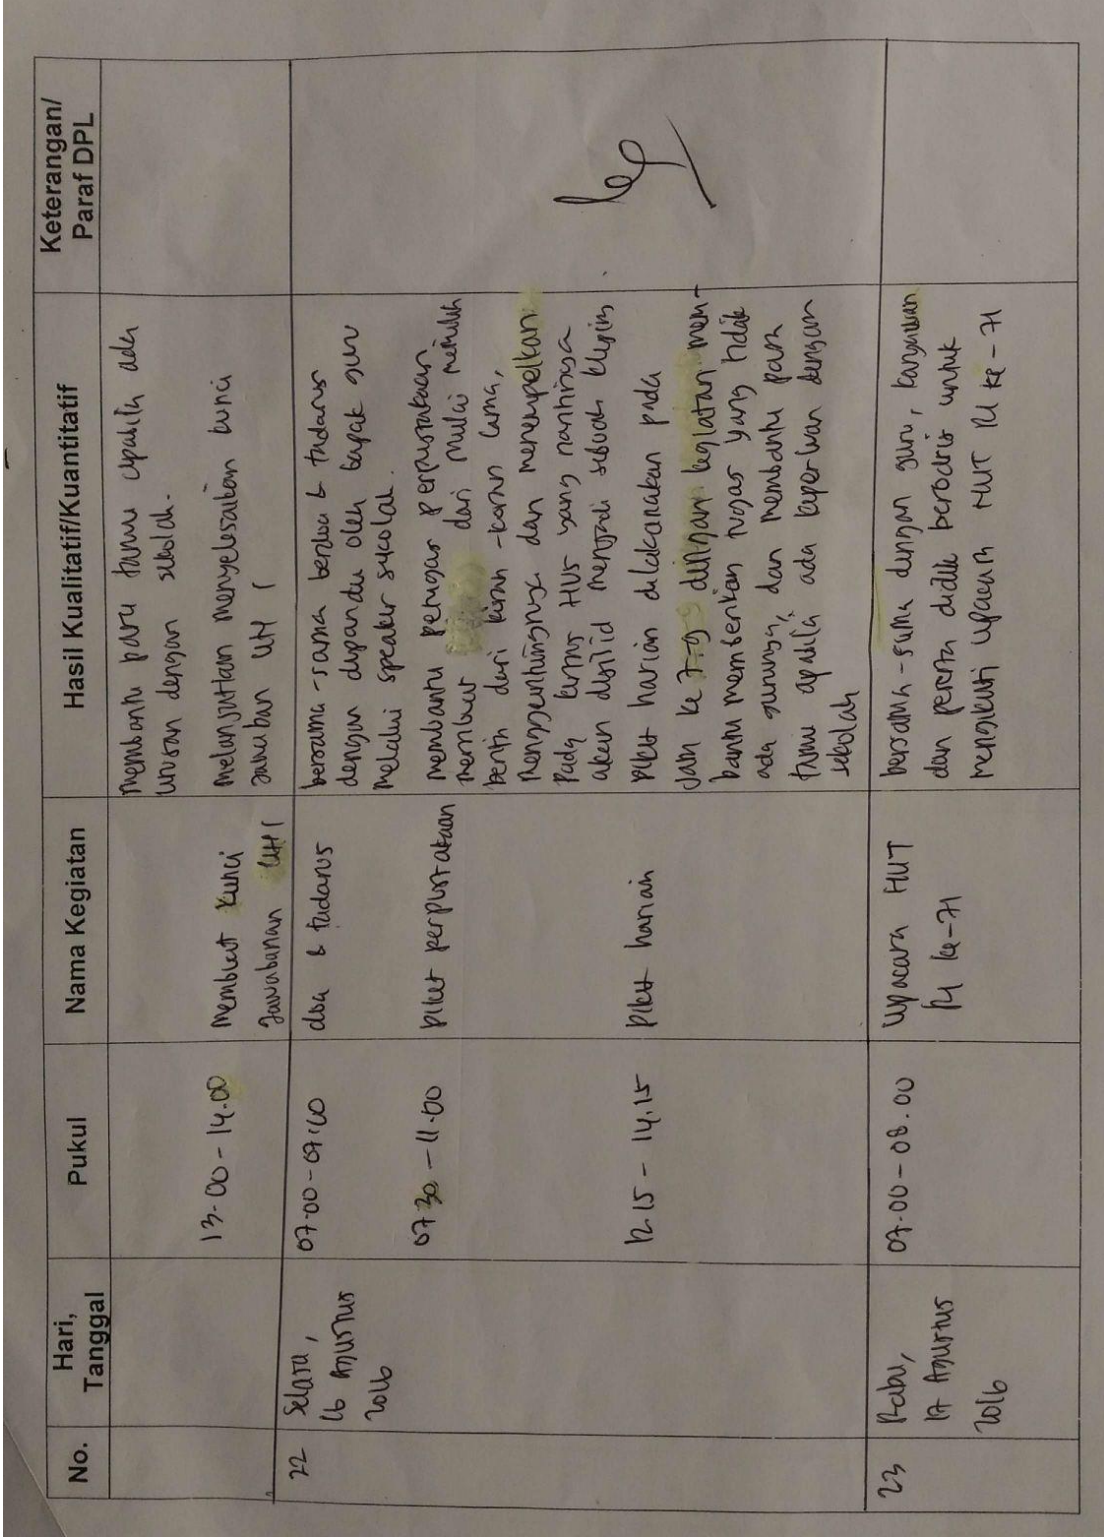 No.
Hari,
Tanggal
Pukul
Nama Kegiatan
Hasil Kualitatif/Kuantitatif
Keterangan/
Paraf DPL
membantu para tamu apabila ada
urusan dengan sekolah.
13.00 - 14.00
Membuat kunci
Jawabanan UH 1
melanjutkan menyelesaikan kunci
jawaban UH 1
22
Selasa,
16 Agustus
2016
07.00 - 07.10
doa & tadarus
bersama - sama berdoa & tadarus
dengan dipandu oleh bapak guru
melalui speaker sekolah.
07.30 - 11.00
piket perpustakaan
membantu petugas perpustakaan
membuat dari mulai memilih
berita dari koran - koran lama,
mengguntingnya dan menempelkan
pada kertas HVS yang nantinya
akan dijilid menjadi sebuah kliping.
12.15 - 14.15
piket harian
piket harian dilaksanakan pada
Jam ke 7,8,9 dengan kegiatan mem-
bantu memberikan tugas yang tidak
ada gurunya, dan membantu para
tamu apabila ada keperluan dengan
sekolah
23
Rabu,
17 Agustus
2016
07.00 - 08.00
Upacara HUT
RI ke-71
bersama - sama dengan guru, karyawan
dan peserta didik berbaris untuk
mengikuti upacara HUT RI ke - 71